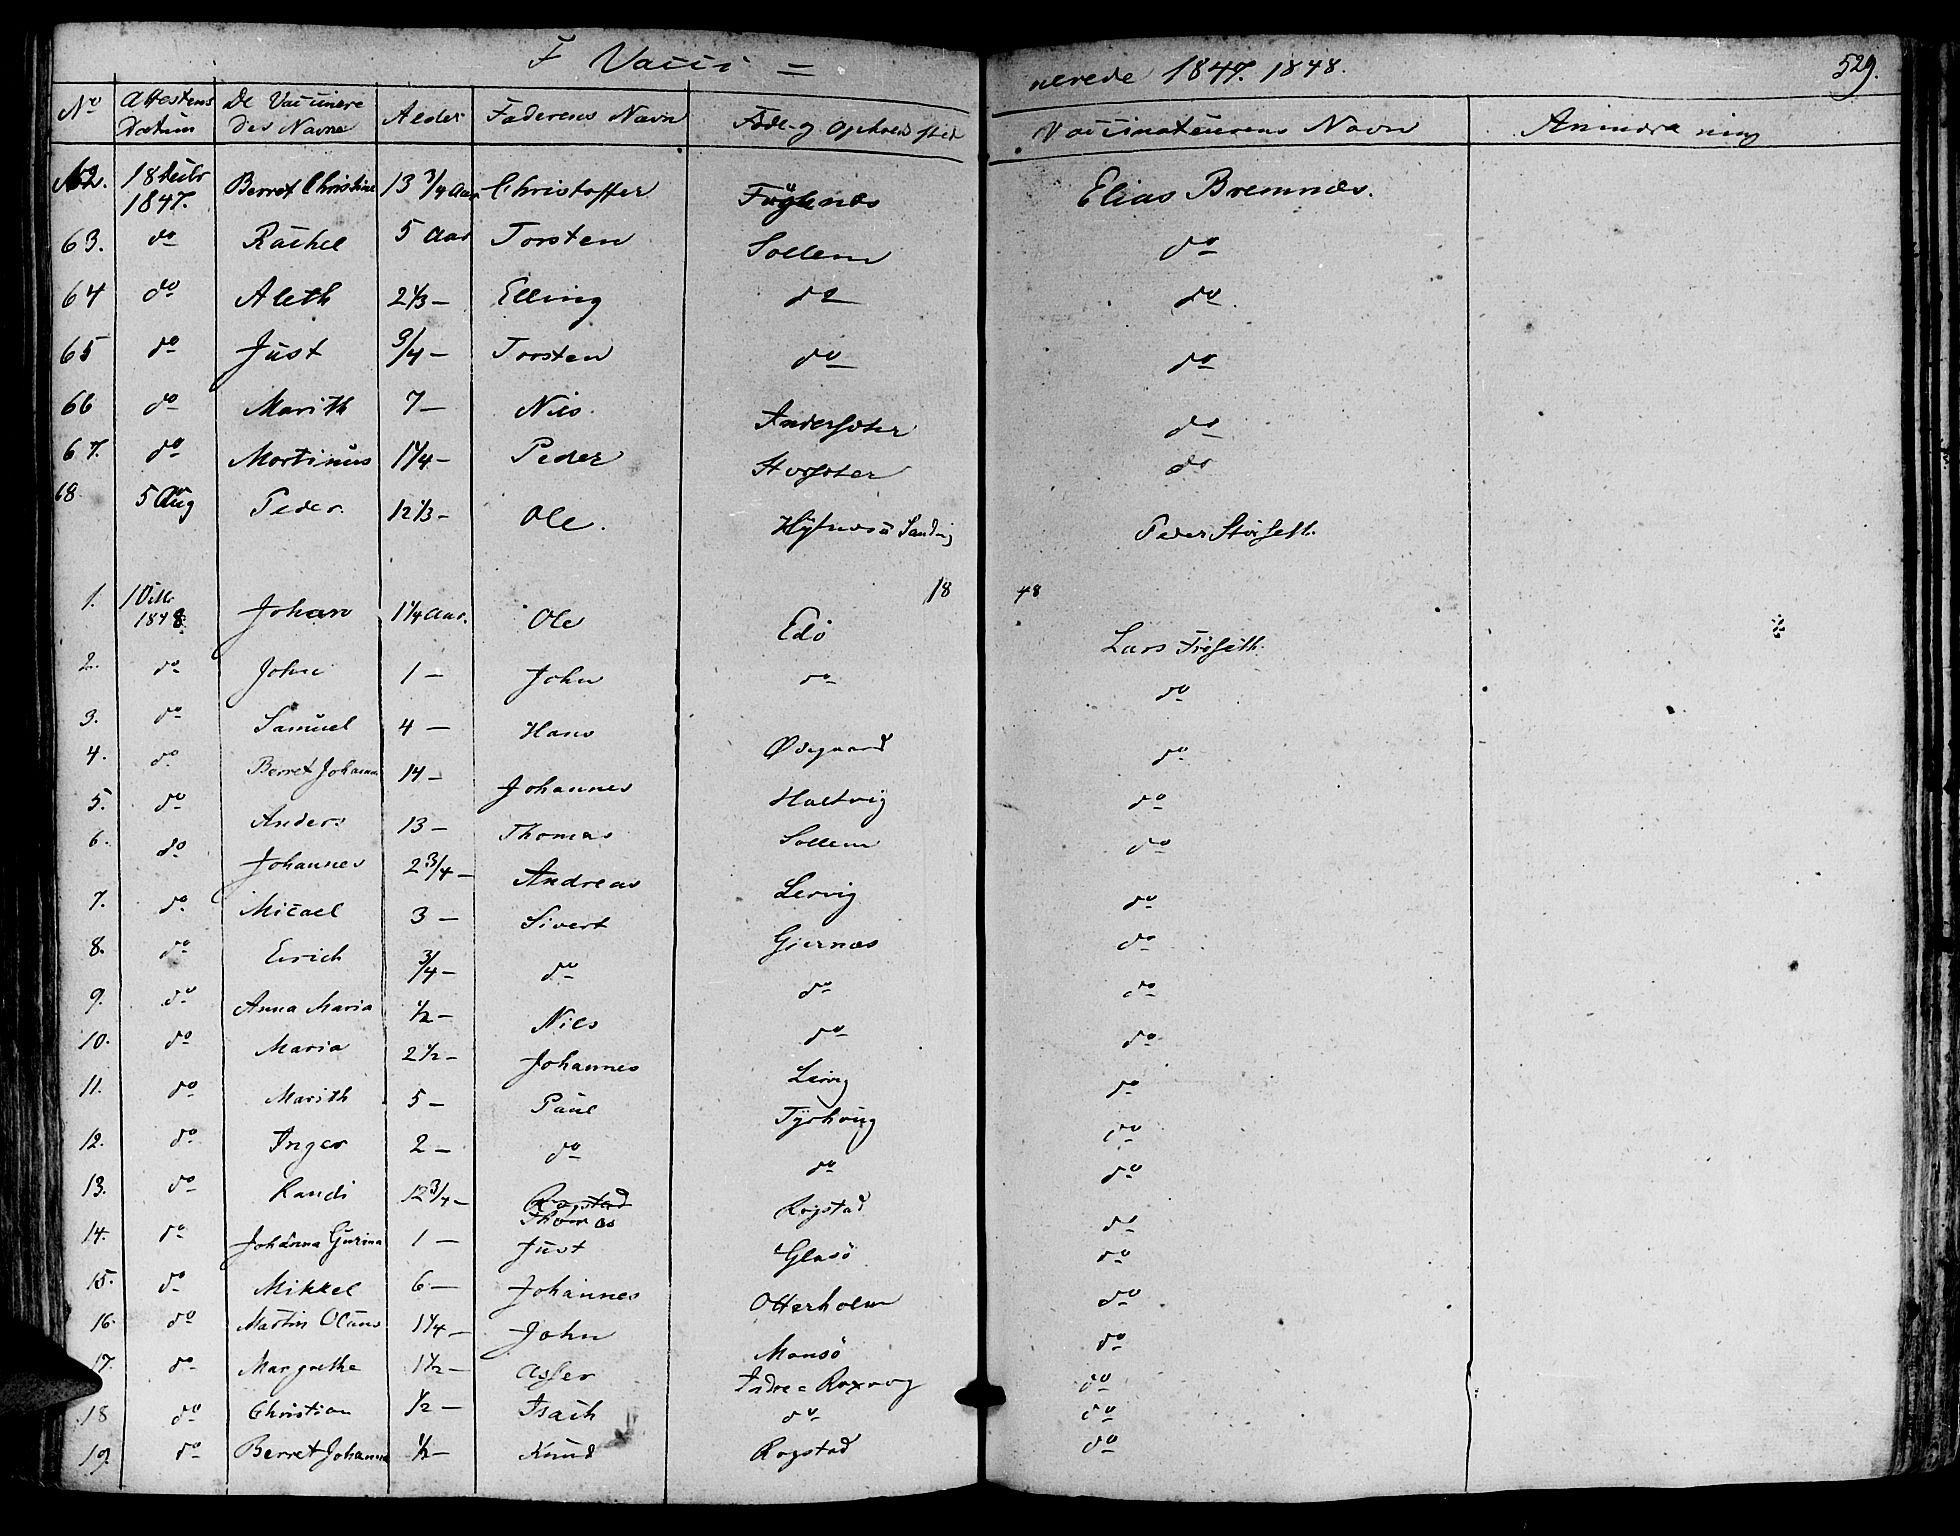 F Vacci =
nerede 1847. 1848.
529.
No Attestens Datum De Vaccinere des Navne Alder Faderens Navn Føde- og Opholdssted Vaccinateurens Navn Anmærkning
62. 18 Decbr 1847. Berret Christine 13 3/4 Aar Christoffer Elias Bremnæs.
63. do Rachel 5 Aar Torsten Sollem do
64 do Aleth 2 1/3 — Elling do do
65 do Just 3/4 — Torsten do do
66 do Marith 7 — Nils. do
67. do Mortinus 1 1/4 — Peder do
68 5 Aug Peder. 12 1/3 — Ole. Peder Størseth.
1848
1. 1 Dec. 1848. Johan 1 1/4 Aar. Ole Edö Lars Fröseth.
2. do John 1 — John do do
3. do Samuel 4 — Hans Ødegaard do
4. do Berret Johanna 14 — Johannes Haltvig do
5. do Anders 13 — Thomas Sollem do
6. do Johannes 2 3/4 — Andreas Lervig do
7. do Micael 3 — Sivert Gjernæs do
8. do Erich 3/4 — do do do
9. do Anna Maria 1/2 — Nils do do
10. do Maria 2 1/2 — Johannes Lervig do
11. do Marith 5 — Paul Tyrhoug do
12. do Inger 2 — do do do
13. do Randi 12 3/4 — Rogstad Thomas Rogstad do
14. do Johanna Gurina 1 — Just Glasö do
15. do Mikkel 6 — Johannes Otterholm do
16. do Martin Olaus 1 1/4 — John Monsö do
17. do Margrethe 1 1/2 — Asser Indre = Roxvog do
18 do Christian 1/2 — Isach do do
19. do Berret Johanna 1/2 — Knud Rogstad do